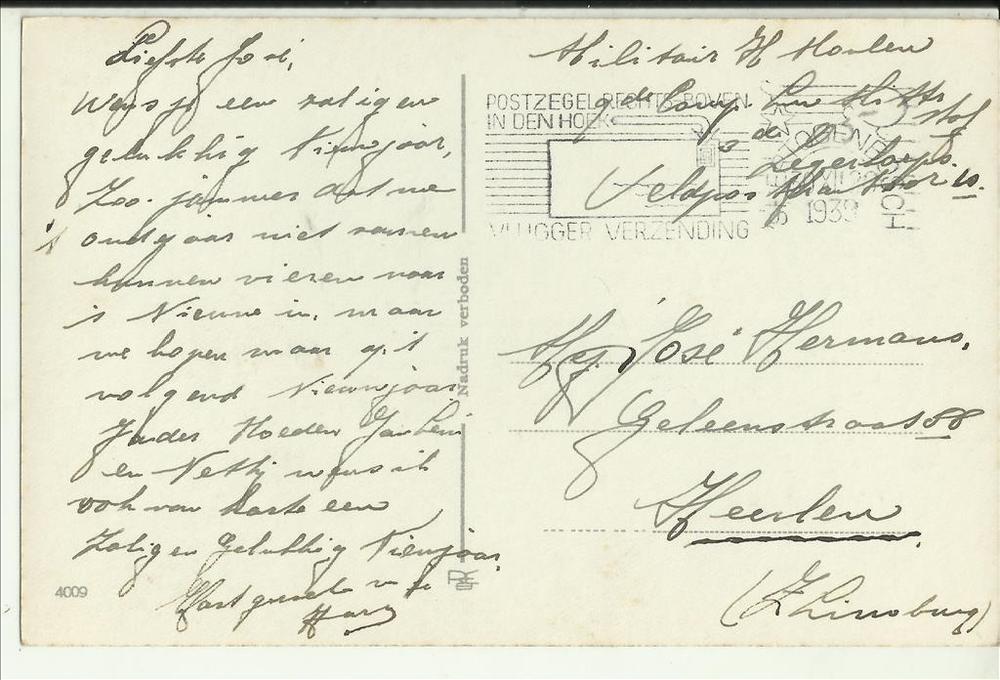 Liefste José,
Wens je een zaligen
gelukkig Nieuwjaar,
Zoo jammer dat we
't oudejaar niet samen
kunnen vieren naar
't Nieuwe in, maar
we hopen maar op 't
volgend Nieuwjaar
Vader Moeder
en Netty wens ik
ook van harte een
Zaligen Gelukkig Nieuwjaar
Hart groeten v. je
Harry
4009
Nadruk verboden
Militair H
Comp.
Staf
Legerkorps
Veldpostkantoor 10.
POSTZEGEL RECHTS BOVEN
IN DEN HOEK
VLUGGER VERZENDING
1939
Mej José Hermans,
Geleenstraat 88
Heerlen
(Z Limburg)